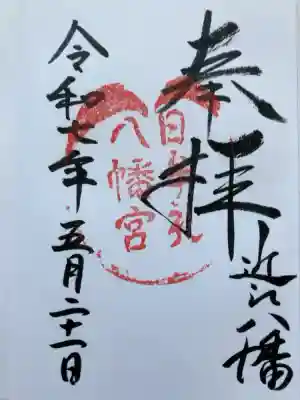 奉拝
近江八幡
日牟禮
八幡宮
令和七年五月二十一日